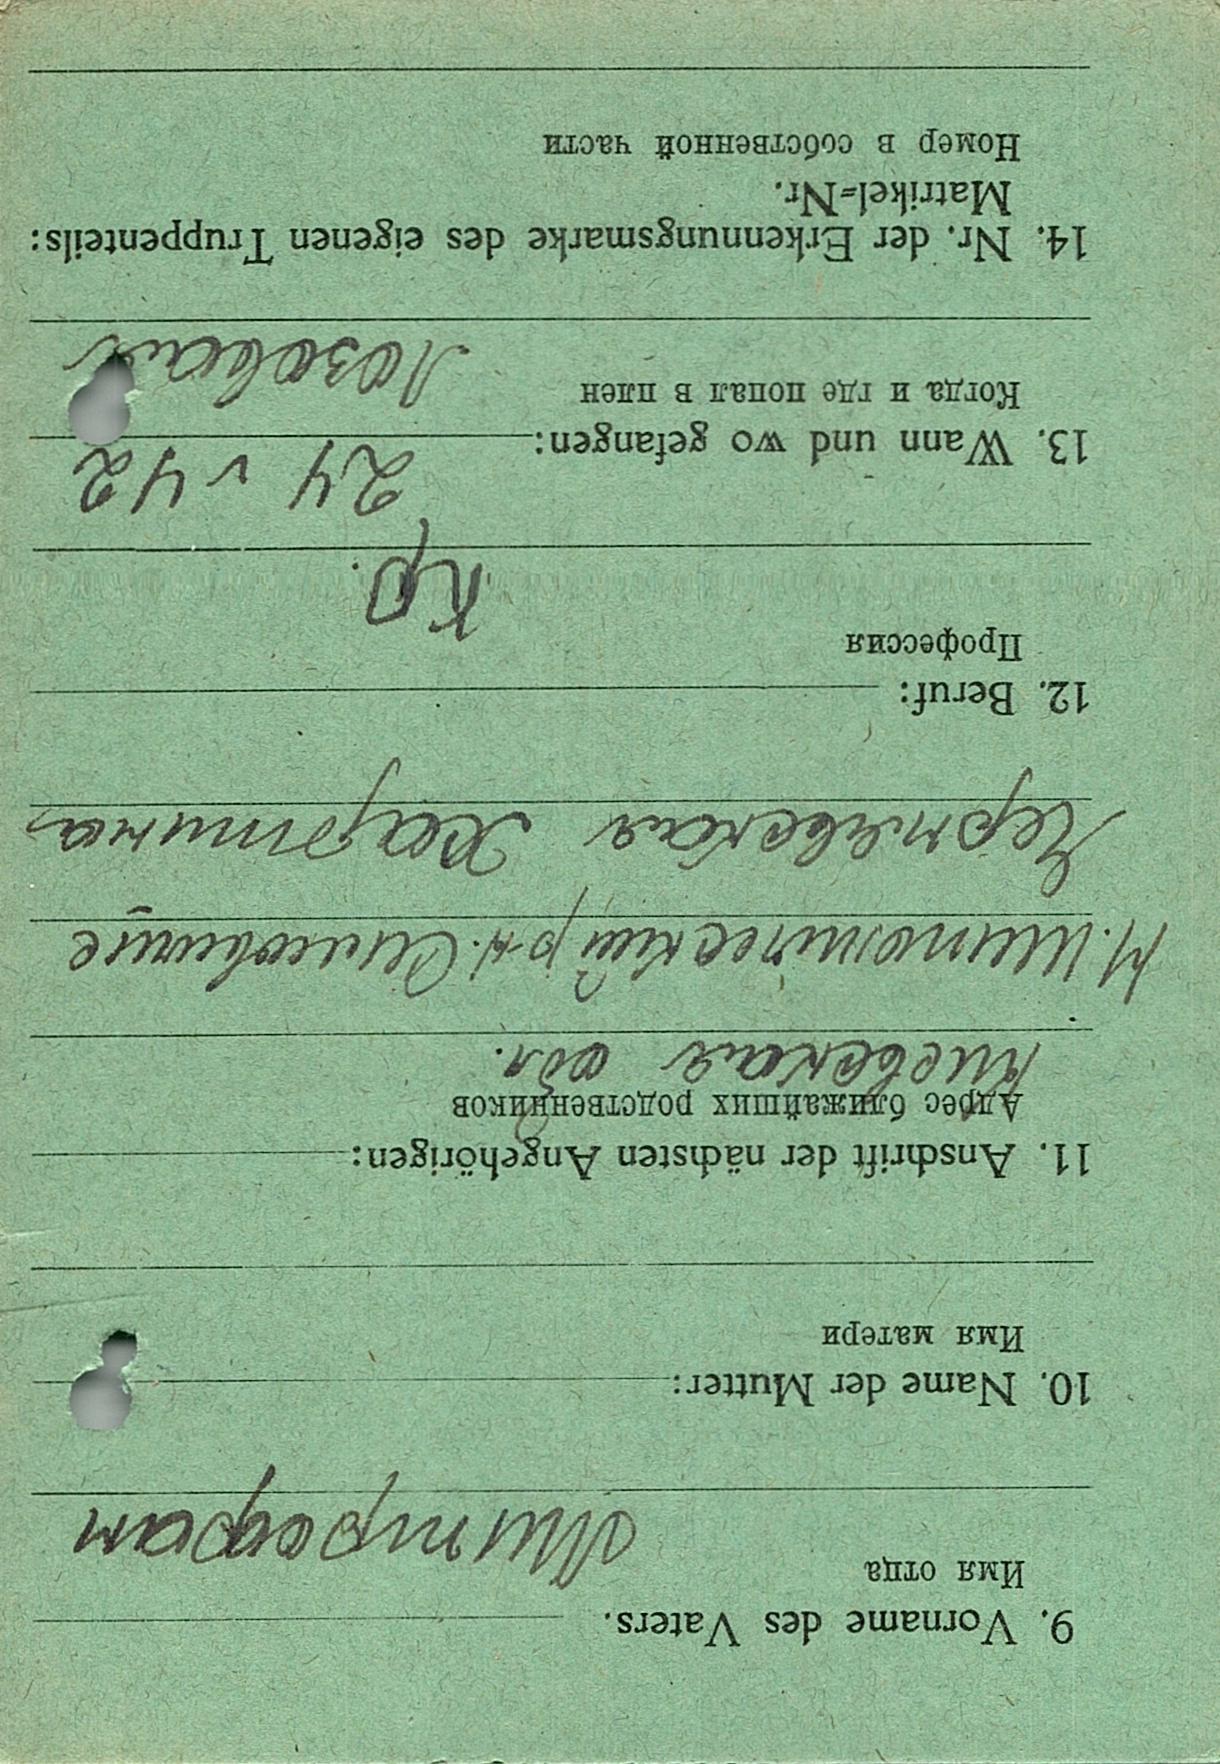 9. Vorname des Vaters.
Имя отца
Митрофан
10. Name der Mutter:
Имя матери
11. Anschrift der nächsten Angehörigen:
Адрес ближайших родственников
Киевская обл.
р-н.
12. Beruf:
Профессия
Кр.
13. Wann und wo gefangen:
24 V 42
Когда и где попал в плен
Лозовая
14. Nr. der Erkennungsmarke des eigenen Truppenteils:
Matrikel=Nr.
Номер в собственной части